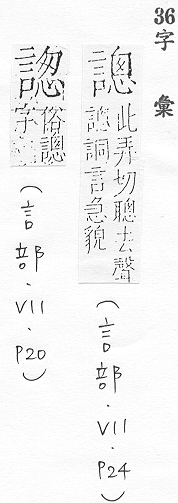 36字彙
謥
此弄切聰去聲
謥詷言急貌
(言部.VII.P24)
俗謥
字
(言部.VII.P20)